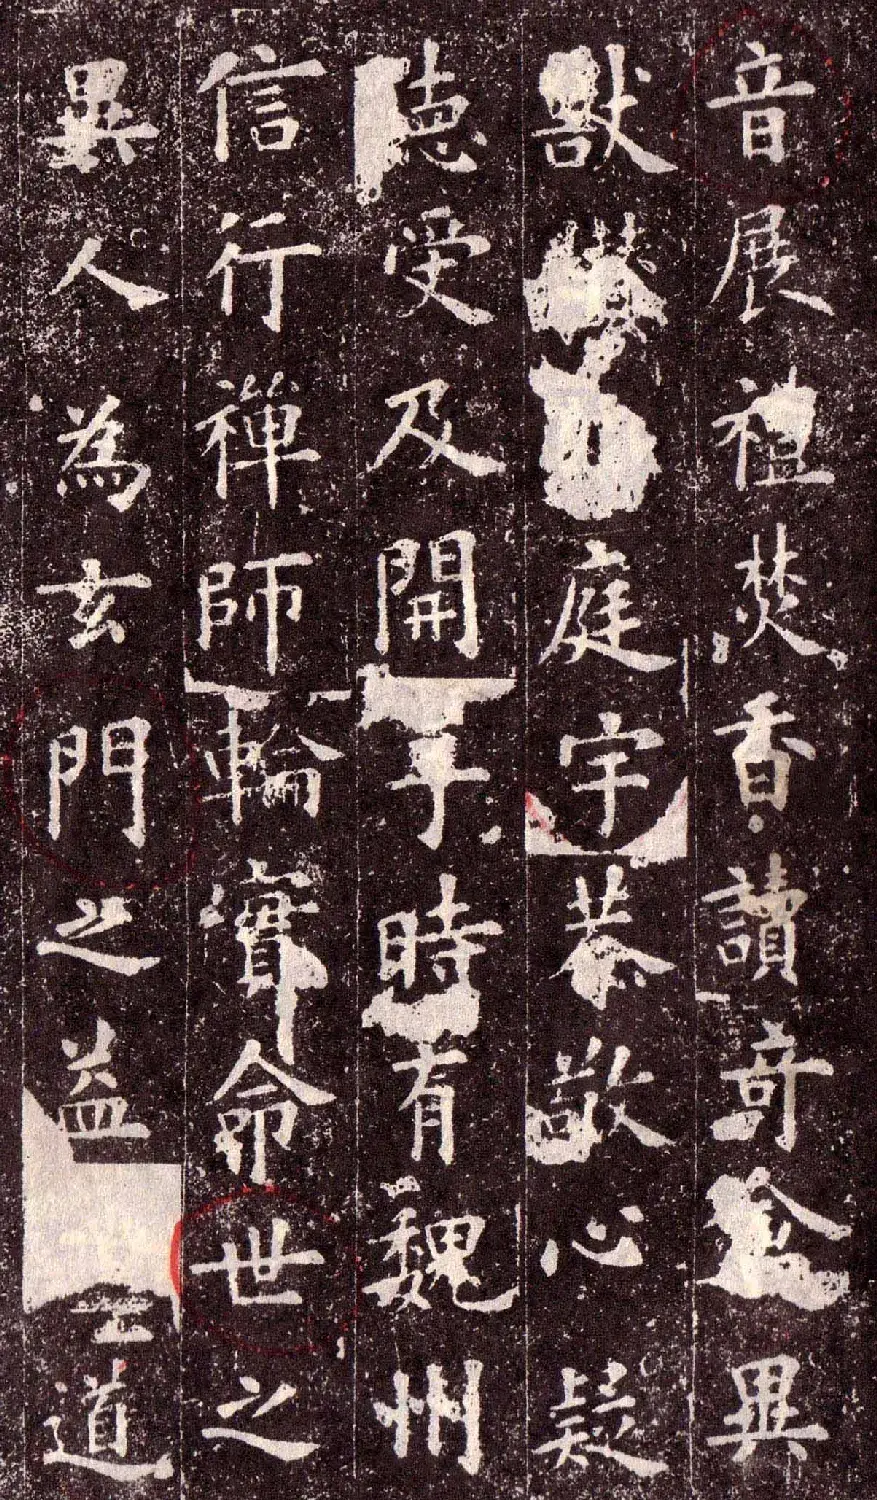 音展禮焚香讀奇畢
獸庭宇恭敬心疑
德受及開時有魏州
信行禪師輪實命世之
異人為玄門之益道